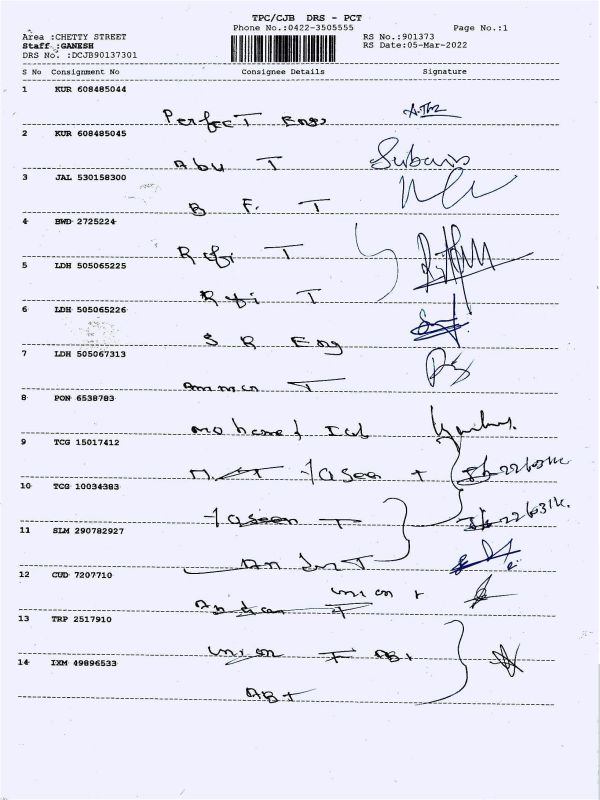 TPC/CJB DRS - PCT
Phone No.:0422-3505555 Page No.:1
Area :CHETTY STREET RS No.:901373
Staff :GANESH RS Date:05-Mar-2022
DRS No. :DCJB90137301
S No Consignment No Consignee Details Signature
1 KUR 608485044
Perfect Engs
2 KUR 608485045
Abu T Subans
3 JAL 530158300
B F. T
4 BWD 2725224
Rafi T
5 LDH 505065225
Rafi T
6 LDH 505065226
S R Eng
7 LDH 505067313
Amman T
8 PON 6538783
9 TCG 15017412
Taseen T
10 TCG 10034383
Taseen T
11 SLM 290782927
12 CUD 7207710
union T
13 TRP 2517910
union T ABT
14 IXM 49896533
ABT